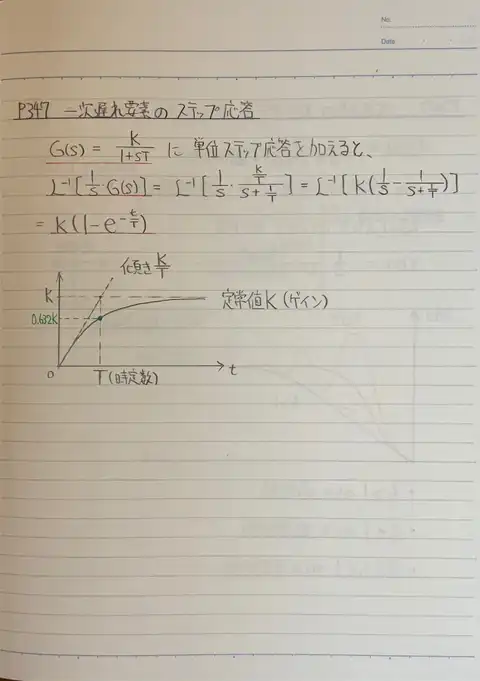 No.
Date
P347 一次遅れ要素のステップ応答
G(s) = K/(1+sT) に単位ステップ応答を加えると、
L⁻¹[1/s・G(s)] = L⁻¹[1/s・(K/T)/(s+1/T)] = L⁻¹[K(1/s - 1/(s+1/T))]
= K(1-e^(-t/T))
傾きK/T
K
定常値K(ゲイン)
0.632K
0
T(時定数)
t